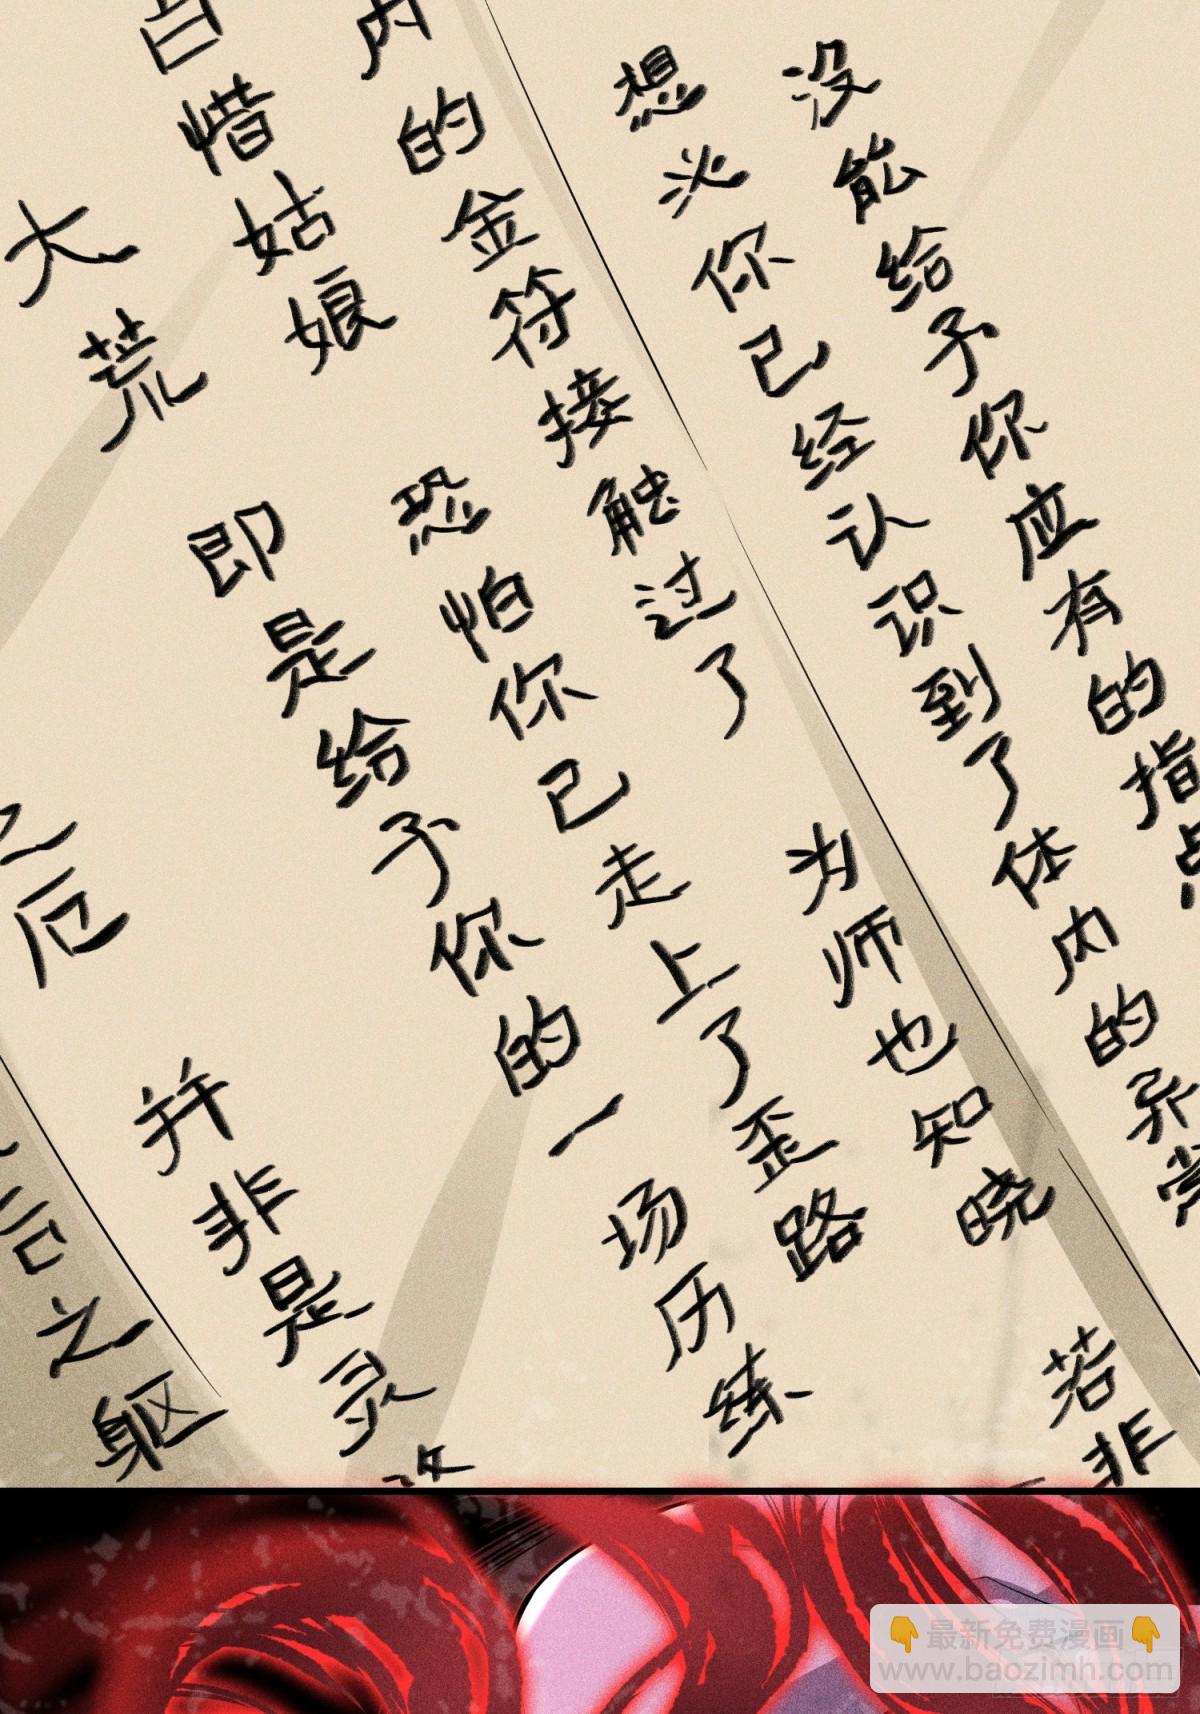 没能给予你应有的指点
想必你已经认识到了体内的异常
若非
内的金符接触过了
为师也知晓
白惜姑娘
恐怕你已走上了歪路
大荒
即是给予你的一场历练
之厄
并非是灵
言之躯
最新免费漫画
www.baozimh.com